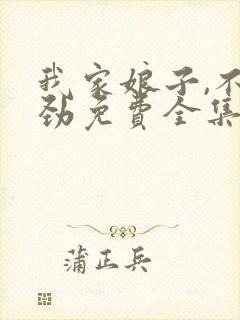 我家娘子,不
劲免费全集
蒲正兵